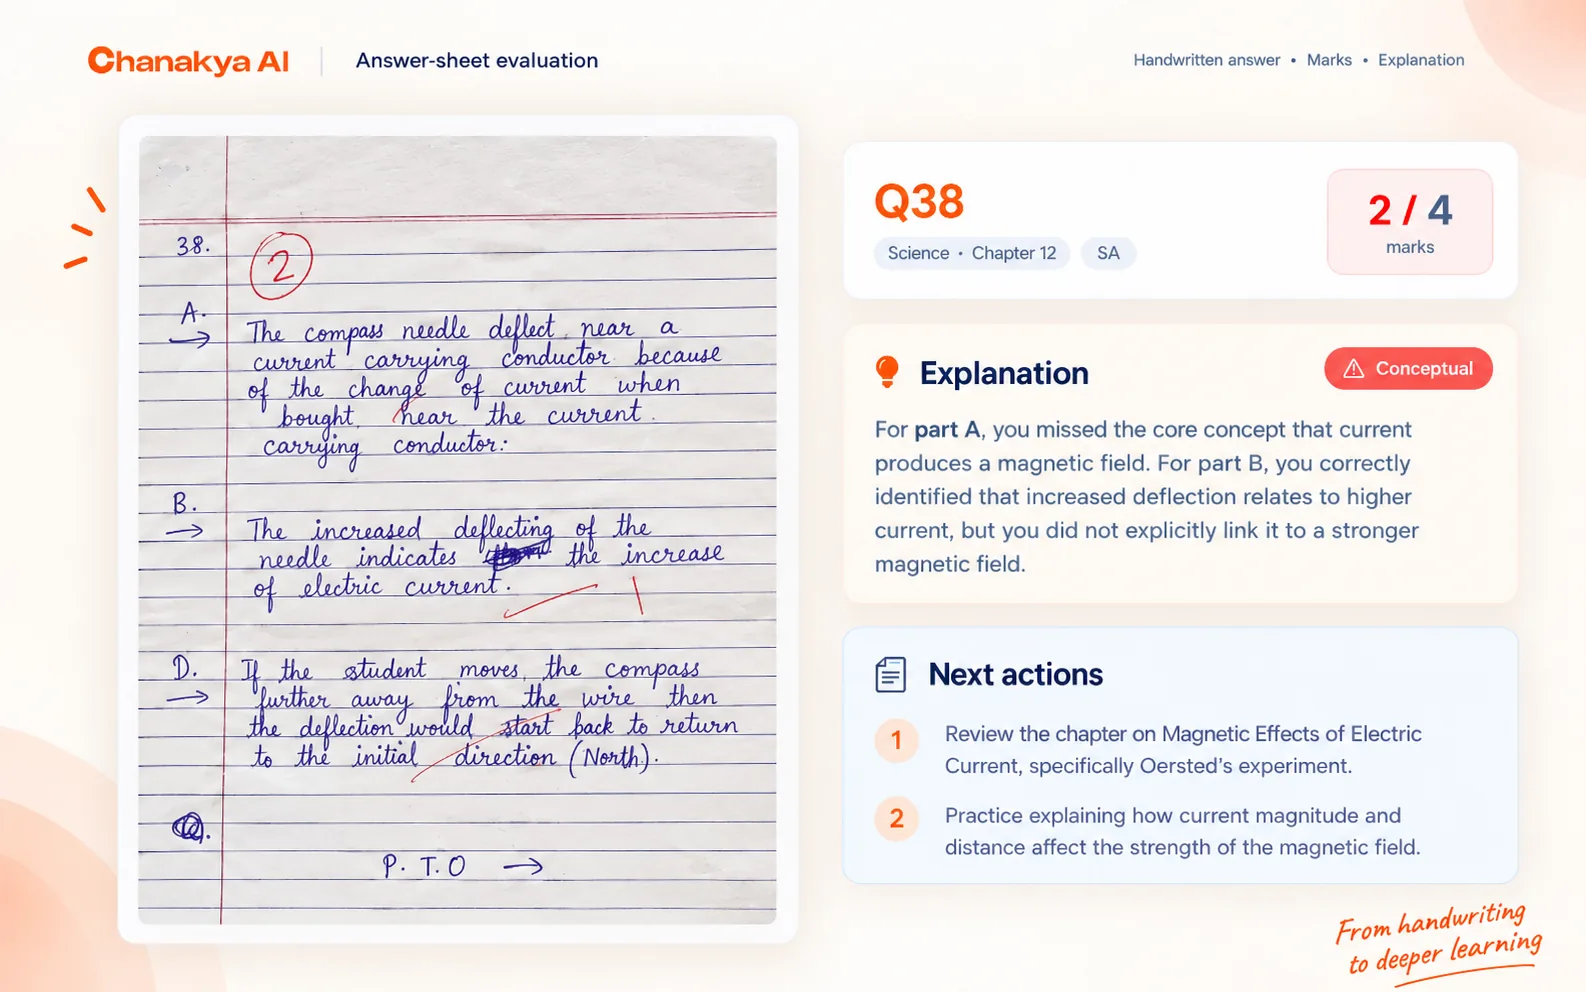 Chanakya AI
Answer-sheet evaluation
Handwritten answer • Marks • Explanation
38.
2
A.
→ The compass needle deflect near a
current carrying conductor because
of the change of current when
bought near the current
carrying conductor:
B.
→ The increased deflecting of the
needle indicates the increase
of electric current.
1
D. If the student moves, the compass
→ further away from the wire then
the deflection would start back to return
to the initial direction (North).
P. T. O →
Q38
Science • Chapter 12
SA
2 / 4
marks
Explanation
Conceptual
For part A, you missed the core concept that current
produces a magnetic field. For part B, you correctly
identified that increased deflection relates to higher
current, but you did not explicitly link it to a stronger
magnetic field.
Next actions
1 Review the chapter on Magnetic Effects of Electric
Current, specifically Oersted's experiment.
2 Practice explaining how current magnitude and
distance affect the strength of the magnetic field.
From handwriting
to deeper learning